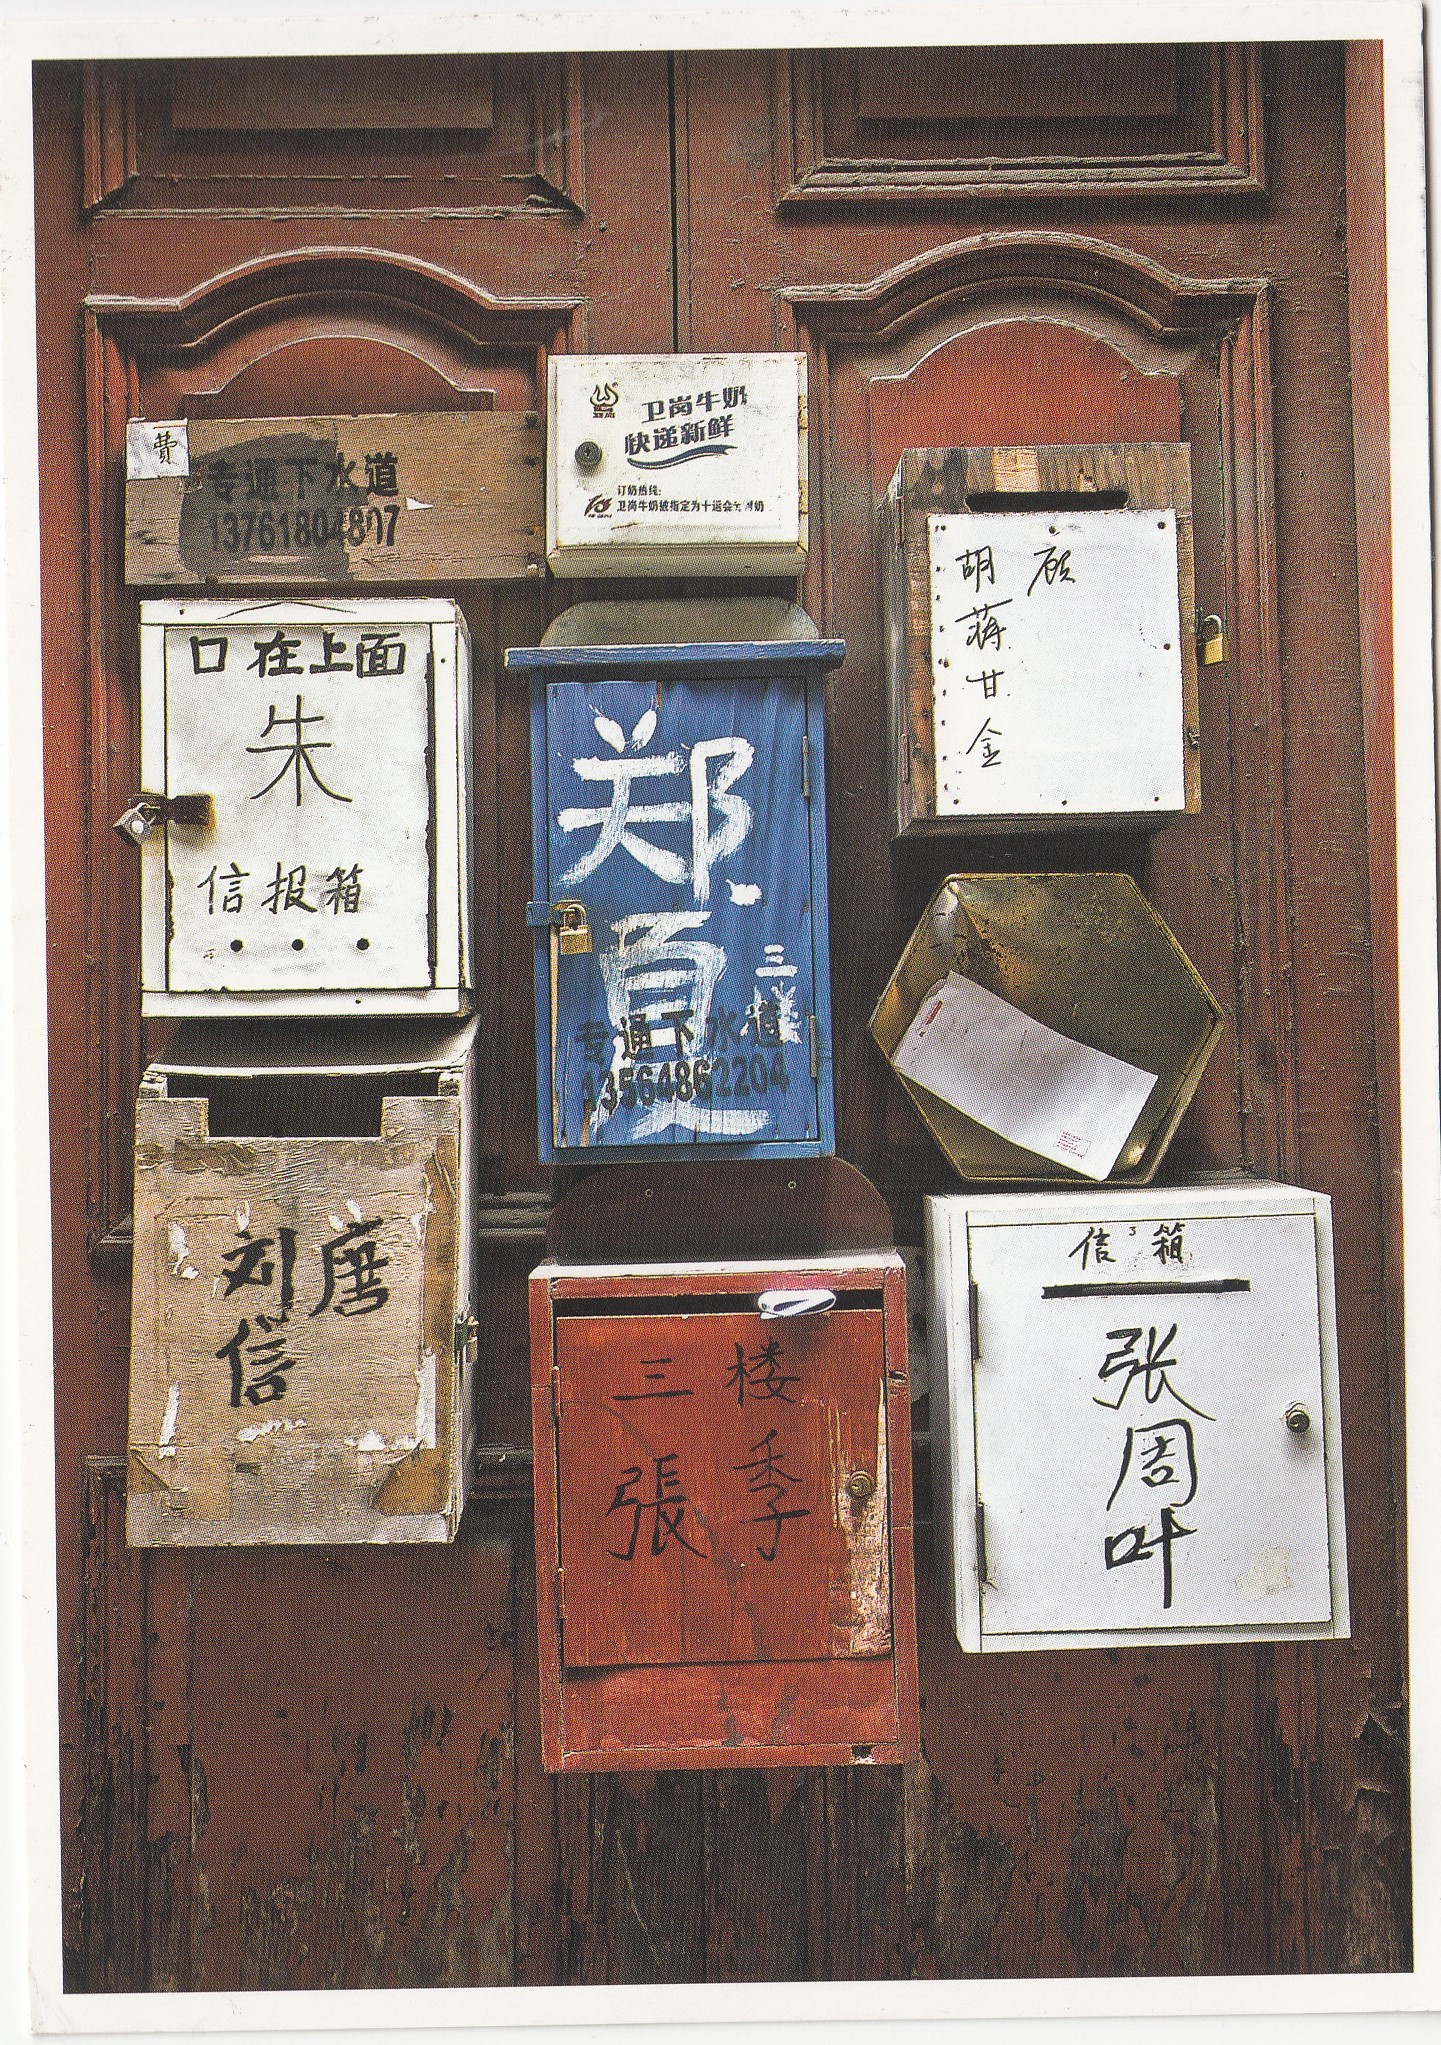 費
专通下水道
13761804807
卫岗牛奶
快递新鲜
订奶热线:
卫岗牛奶被指定为十运会专用奶
胡 顾
蒋
甘
金
口在上面
朱
信报箱
郑
夏
三楼
专通下水道
13564862204
刘 唐
信
三 楼
張 季
信 3 箱
张
周
叶